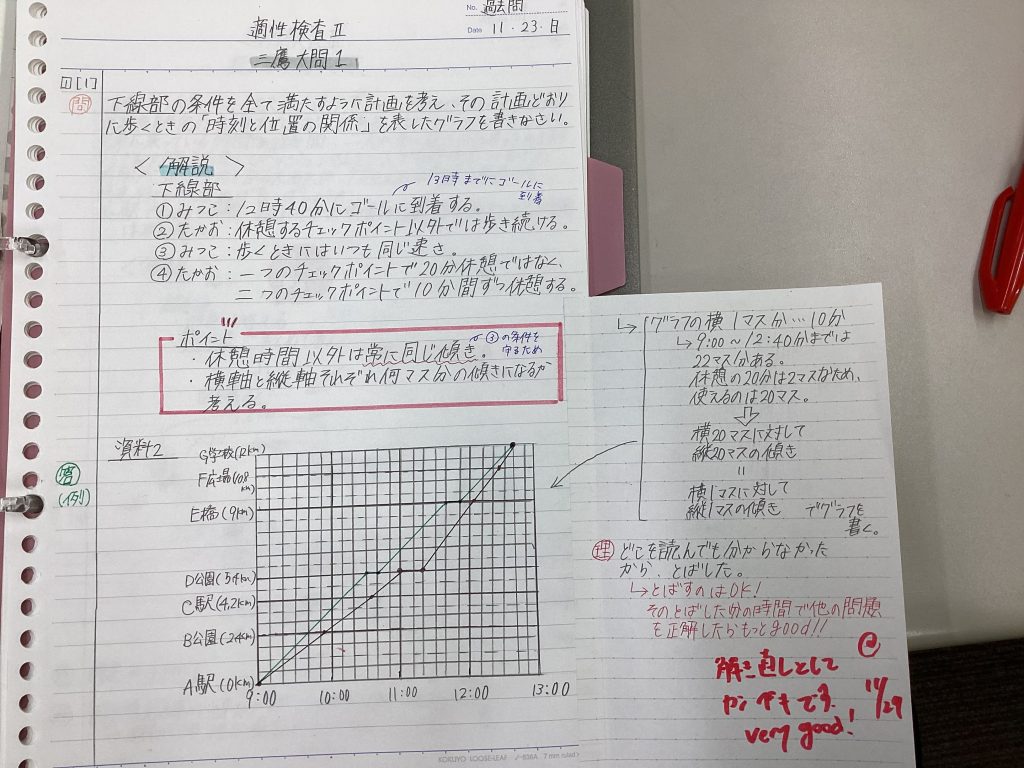 No. 過去問
適性検査Ⅱ
Date 11・23・日
三鷹大問1
1 [1]
問 下線部の条件を全て満たすように計画を考え、その計画どおり
に歩くときの「時刻と位置の関係」を表したグラフを書きなさい。
〈 解説 〉
13時までにゴールに
到着
下線部
①みつこ：12時40分にゴールに到着する。
②たかお：休憩するチェックポイント以外では歩き続ける。
③みつこ：歩くときにはいつも同じ速さ。
④たかお：一つのチェックポイントで20分休憩ではなく、
二つのチェックポイントで10分間ずつ休憩する。
ポイント
③の条件を
守るため
・休憩時間以外は常に同じ傾き。
・横軸と縦軸それぞれ何マス分の傾きになるか
考える。
資料2
答
(例)
G学校(12km)
F広場(10.8
km)
E橋(9km)
D公園(5.4km)
C駅(4.2km)
B公園(2.4km)
A駅(0km)
9:00 10:00 11:00 12:00 13:00
グラフの横1マス分…10分
9:00〜12:40分までは
22マス分ある。
休憩の20分は2マスなため、
使えるのは20マス。
横20マスに対して
縦20マスの傾き
=
横1マスに対して
縦1マスの傾き でグラフを
書く。
理 どこを読んでも分からなかった
から、とばした。
とばすのはOK！
そのとばした分の時間で他の問題
を正解したらもっとgood!!
解き直しとして
カンペキです。
very good!
11/29
KOKUYO LOOSE-LEAF ノ-836A 7 mm ruled